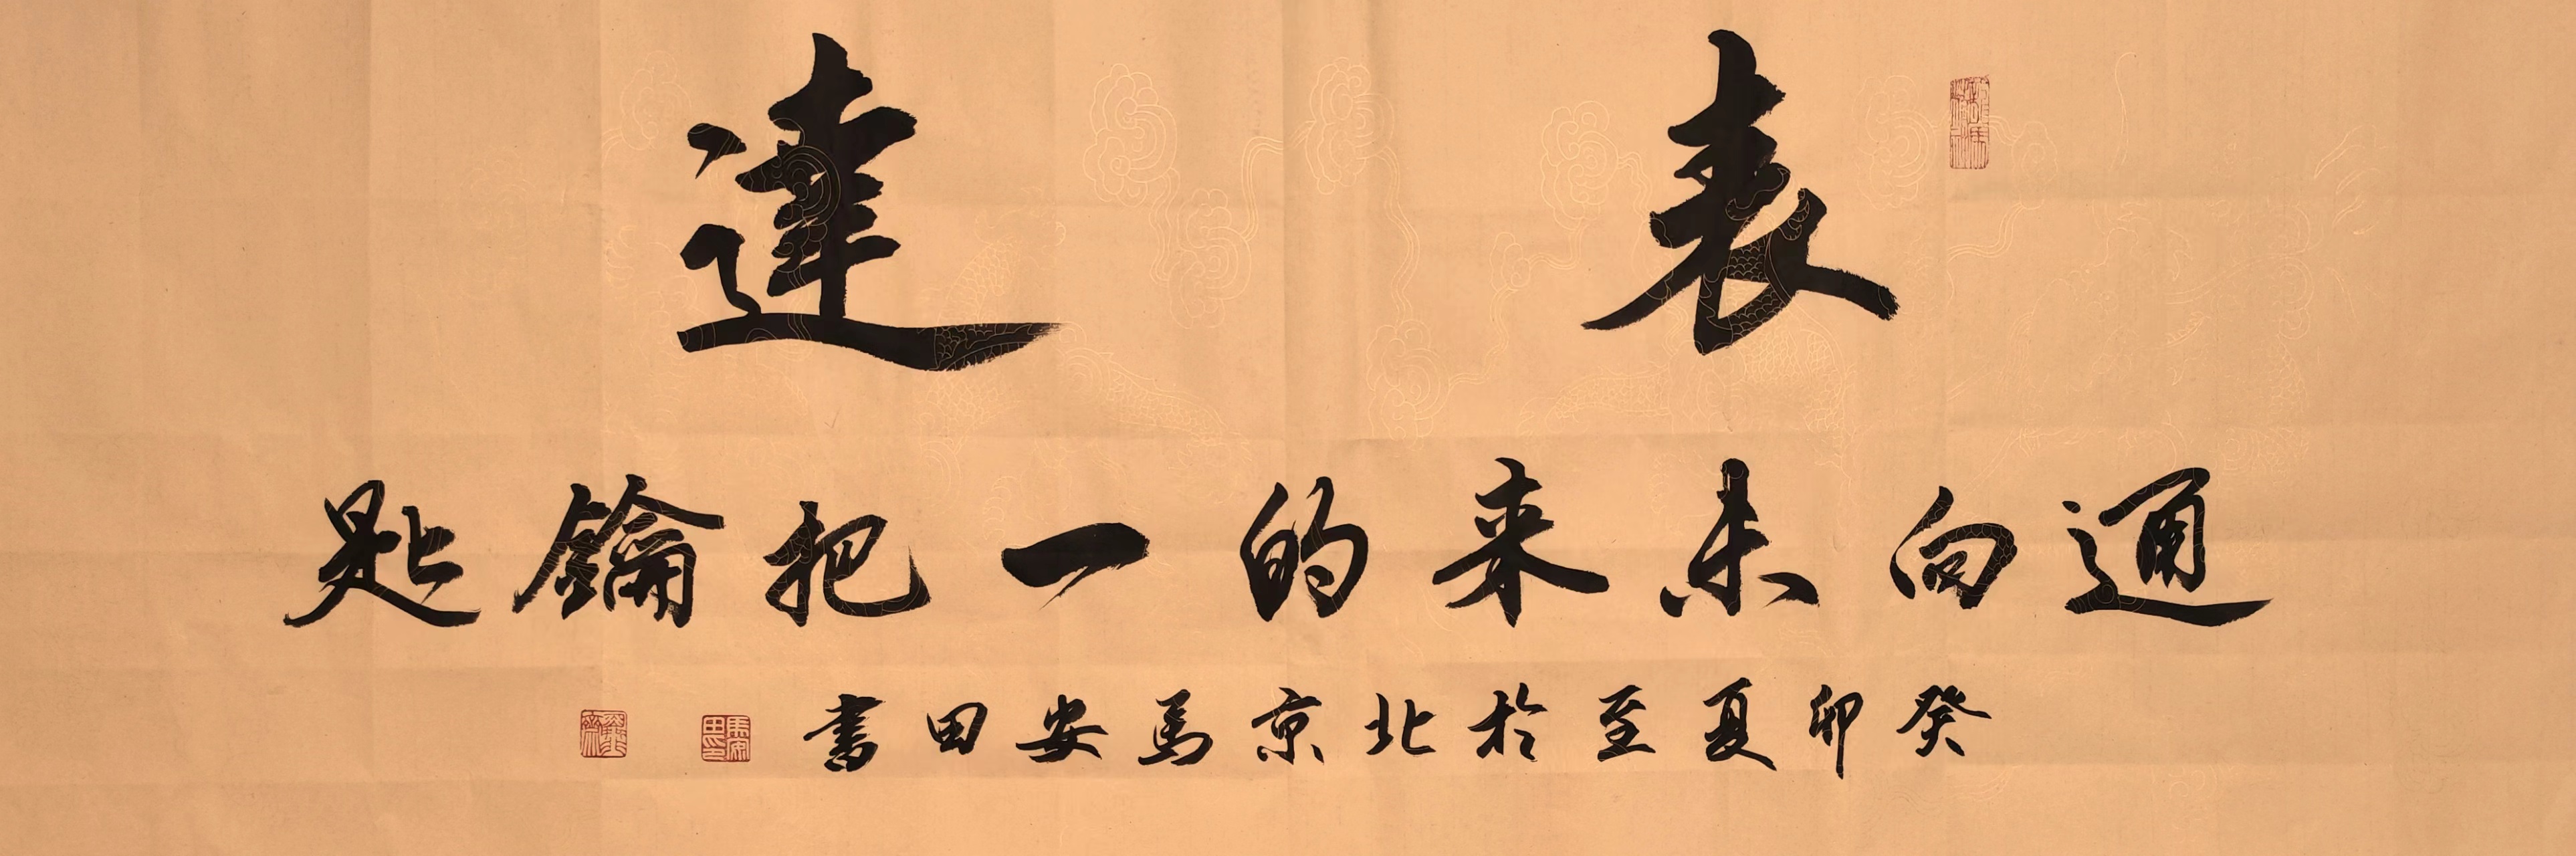 表達
通向未来的一把鑰匙
癸卯夏至於北京馬安田書
馬安田印